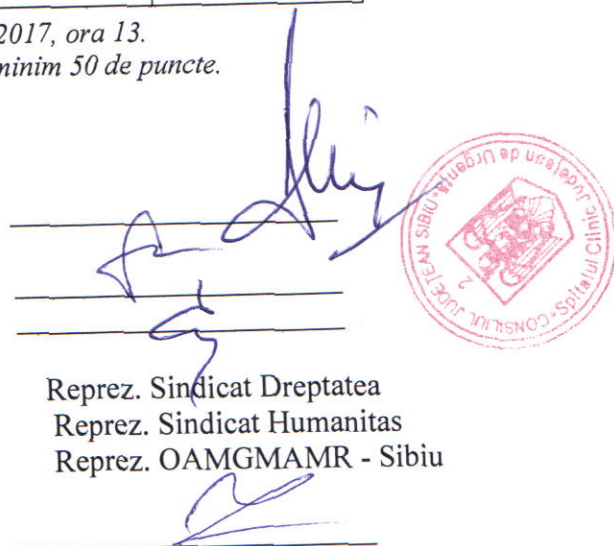 2017, ora 13.
minim 50 de puncte.
CONSILIUL JUDEȚEAN SIBIU * Spitalul Clinic Județean de Urgență *
2
Reprez. Sindicat Dreptatea
Reprez. Sindicat Humanitas
Reprez. OAMGMAMR - Sibiu